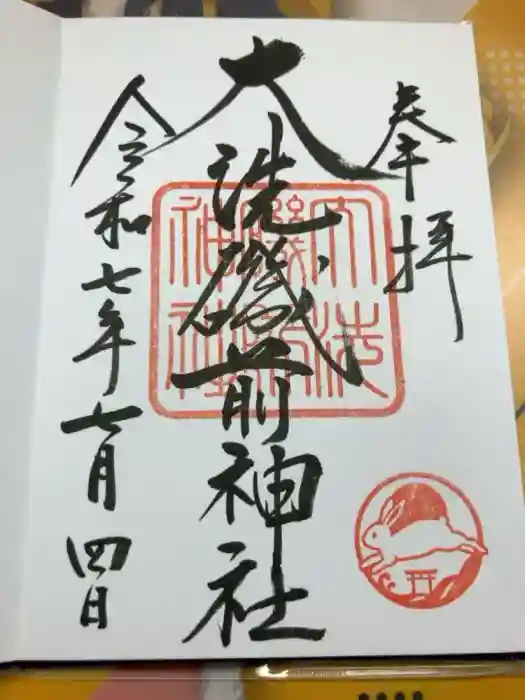 奉拝
大洗磯前神社
大洗
磯前
神社
令和七年七月四日